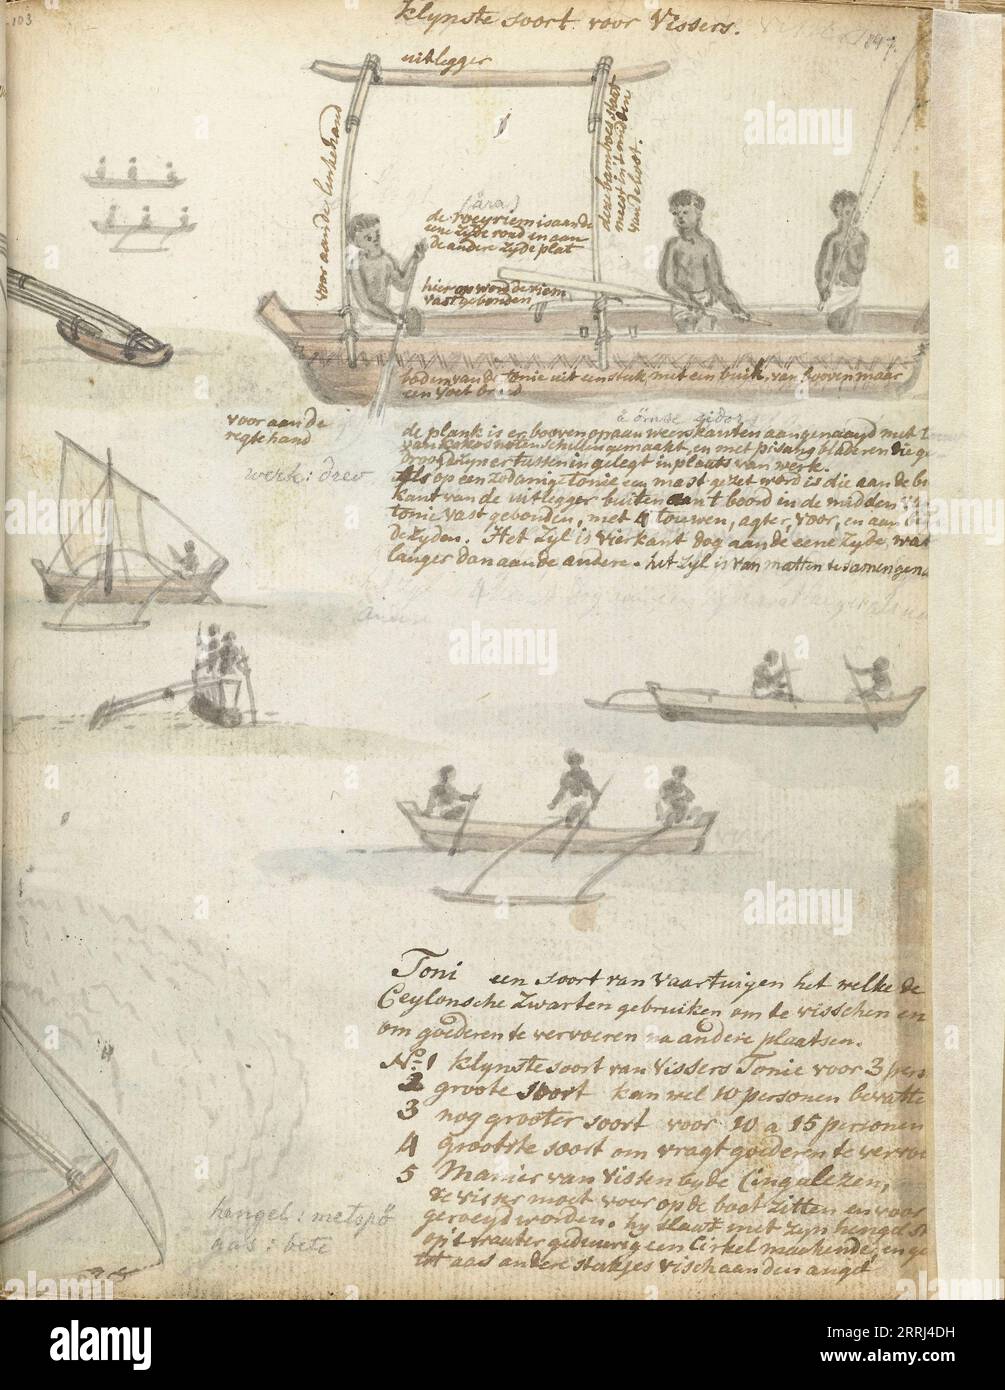 103
klijnste soort voor Vissers.
147.
uitlegger
voor aan de linkehand
deze bamboes staat
meest in't midden
van de boot.
(åra)
de roeyriem is aan de
eene zyde rond en aan
de andere zyde plat
hier op word de riem
vast gebonden
bodem van de Tonie uit een stuk, met een buik, van booven maar
een voet breed
voor aan de
regtehand
werk: drev
de plank is er booven op aan weerskanten aangenaayd met
gemaakt, en met pisang bladeren die ge
droogd zyn er tussen in gelegt in plaats van werk.
Als op een zodanige tonie een mast gezet word is die aan de
kant van de uitlegger buiten aan't boord in de midden
tonie vast gebonden, met 4 touwen, agter, voor, en aan
de zyden. Het Zyl is vierkant dog aan de eene zyde, wat
langer dan aan de andere. het zyl is van matten te samen gena
Toni een soort van vaartuigen het welke de
Ceylonsche Zwarten gebruiken om te visschen en
om goederen te vervoeren na andere plaatsen.
No. 1 klynste soort van vissers Tonie voor 3 pers
2 groote soort kan wel 10 personen bevatte
3 nog grooter soort voor 10 a 15 personen
4 Grootste soort om vragt goederen te vervoe
5 Manier van vissen by de Cingalezen,
de visser moet voor op de boot zitten en voor
geroeyd worden. hy slaat met zyn hengel st
op't water geduurig een Cirkel maakende, en ge
tot aas andere stukjes visch aan den angel
hangel: metspö
aas: bete
alamy
Image ID: 2RRJ4DH
www.alamy.com